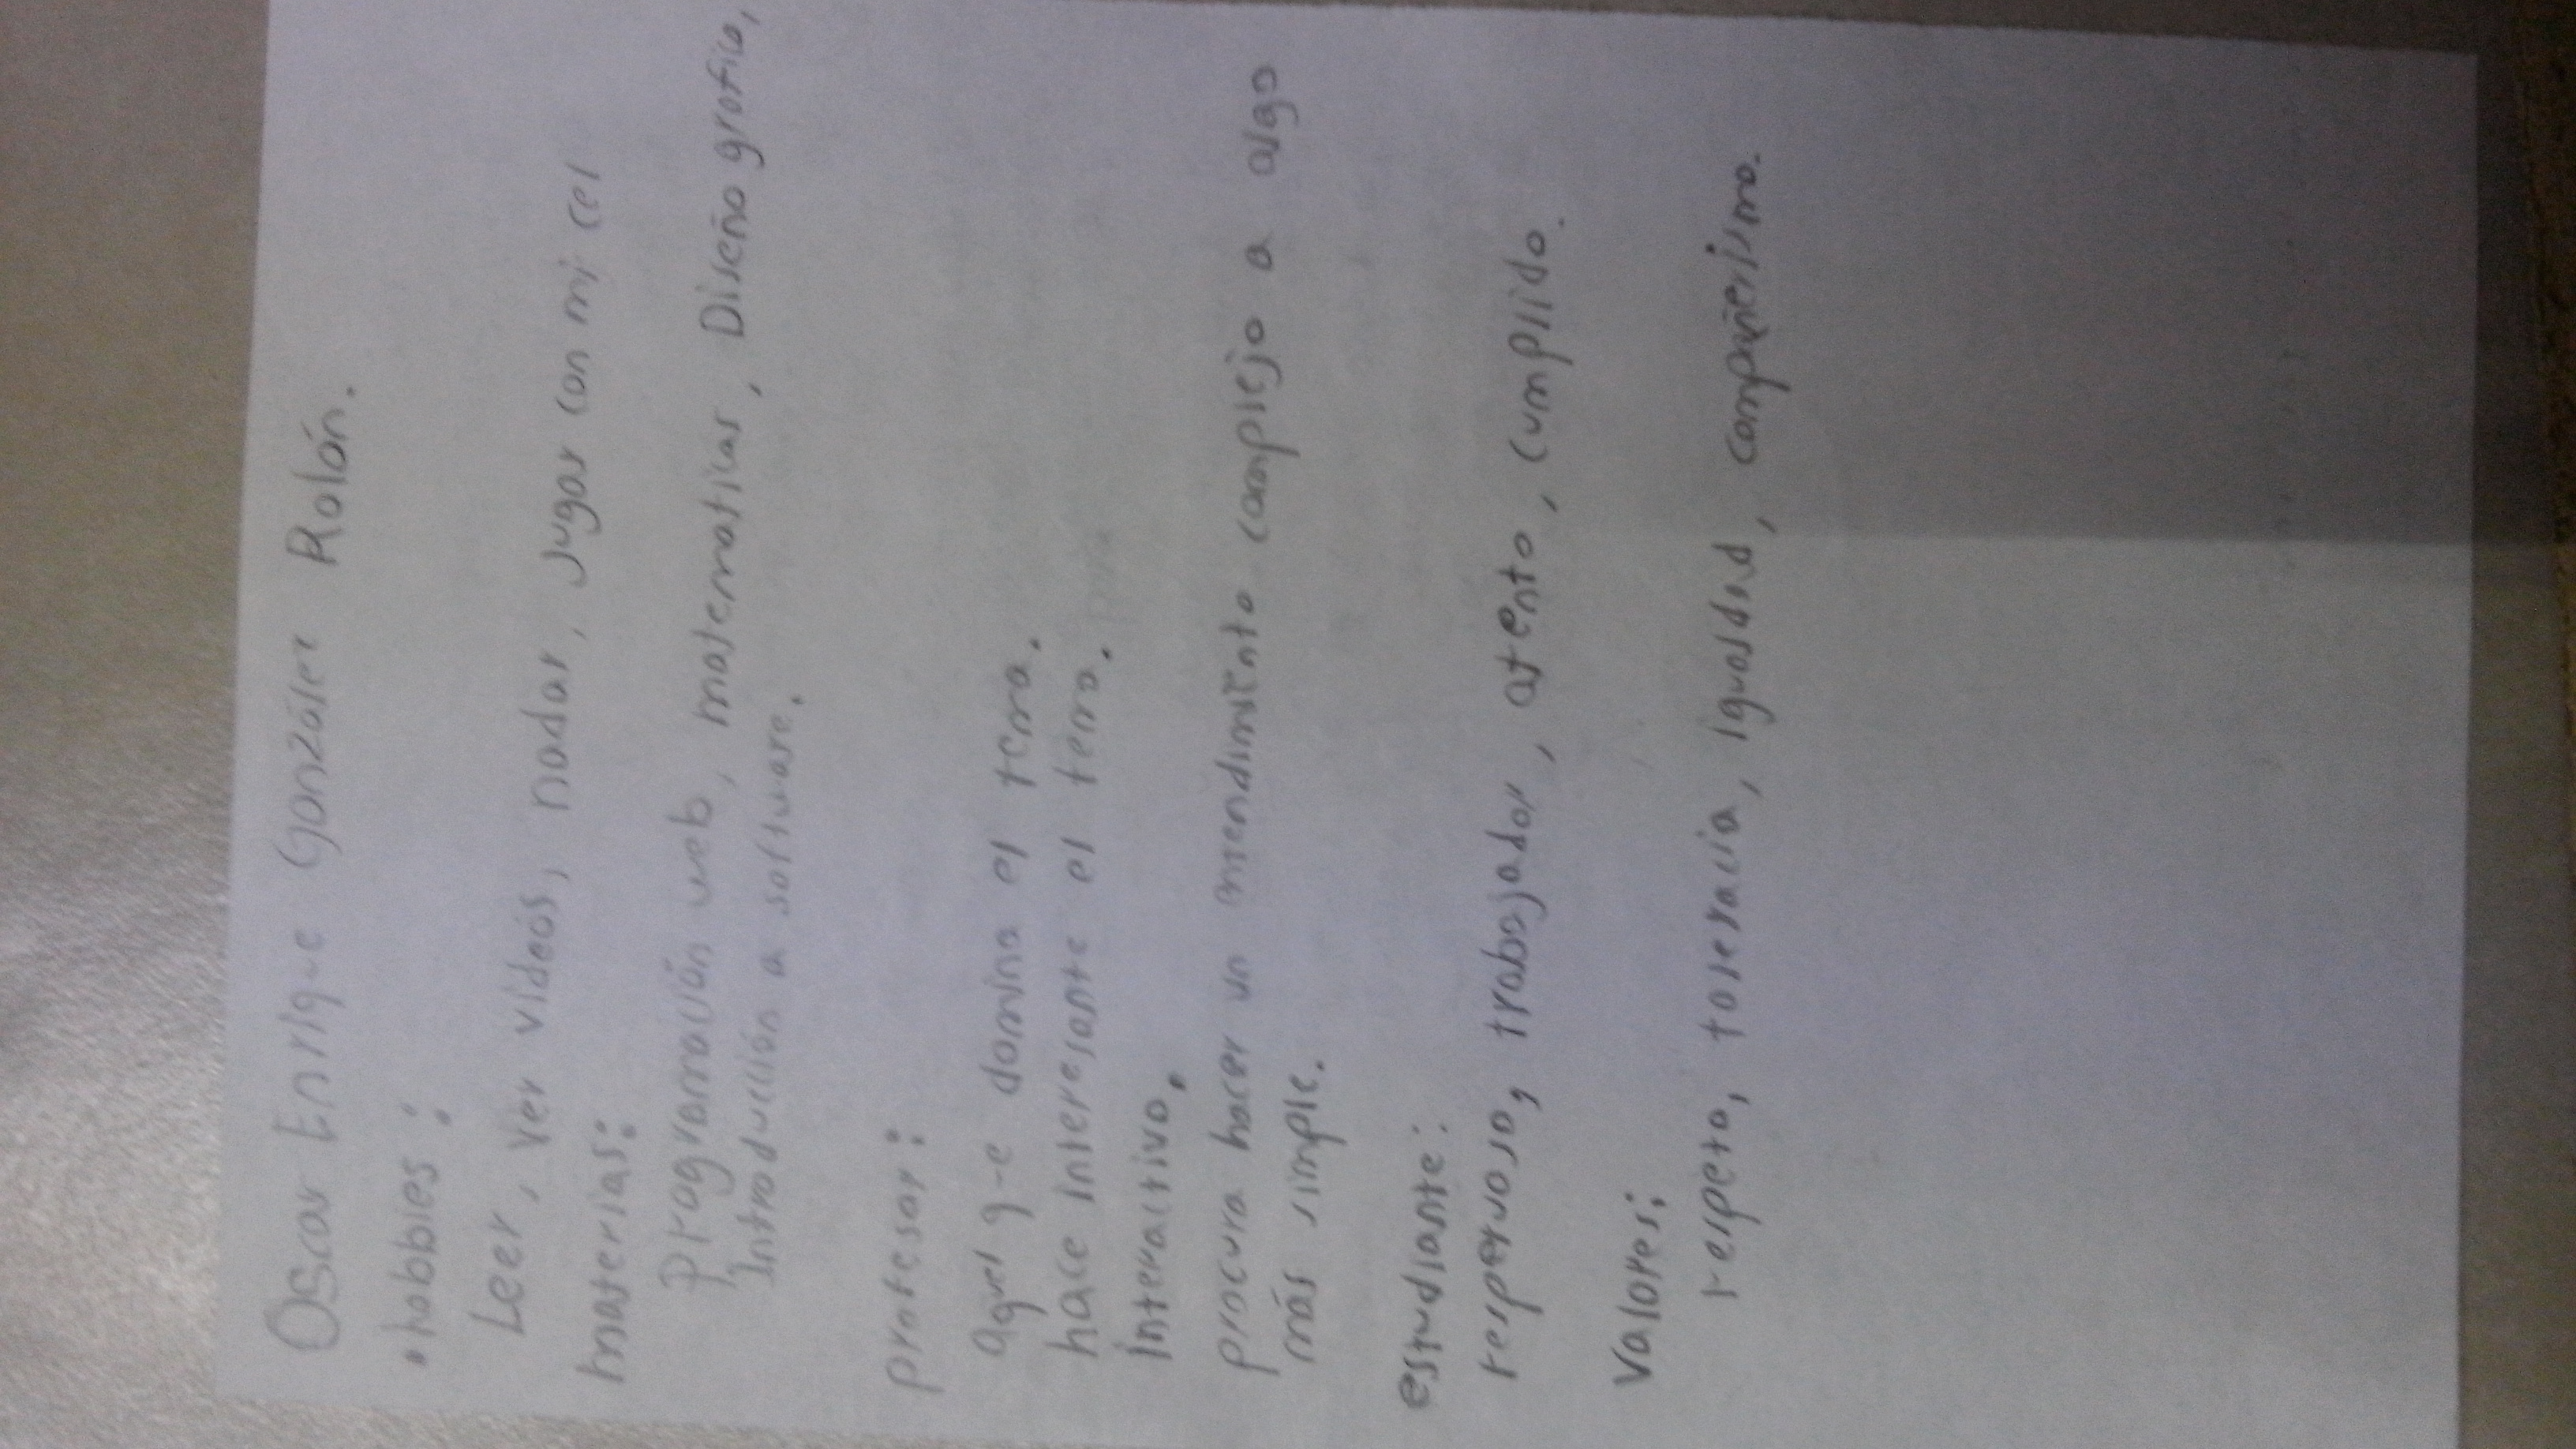 Oscar Enrique González Rolón.
• hobbies :
Leer, ver videos, nadar, Jugar con mi cel
materias:
programación web, matematicas, Diseño grafico,
Introducción a software.
profesor :
aquel que domina el tema.
hace interesante el tema.
interactivo.
procura hacer un entendimiento complejo a algo
más simple.
estudiante:
respetuoso, trabajador, atento, cumplido.
Valores:
respeto, toleracia, igualdad, compañerismo.